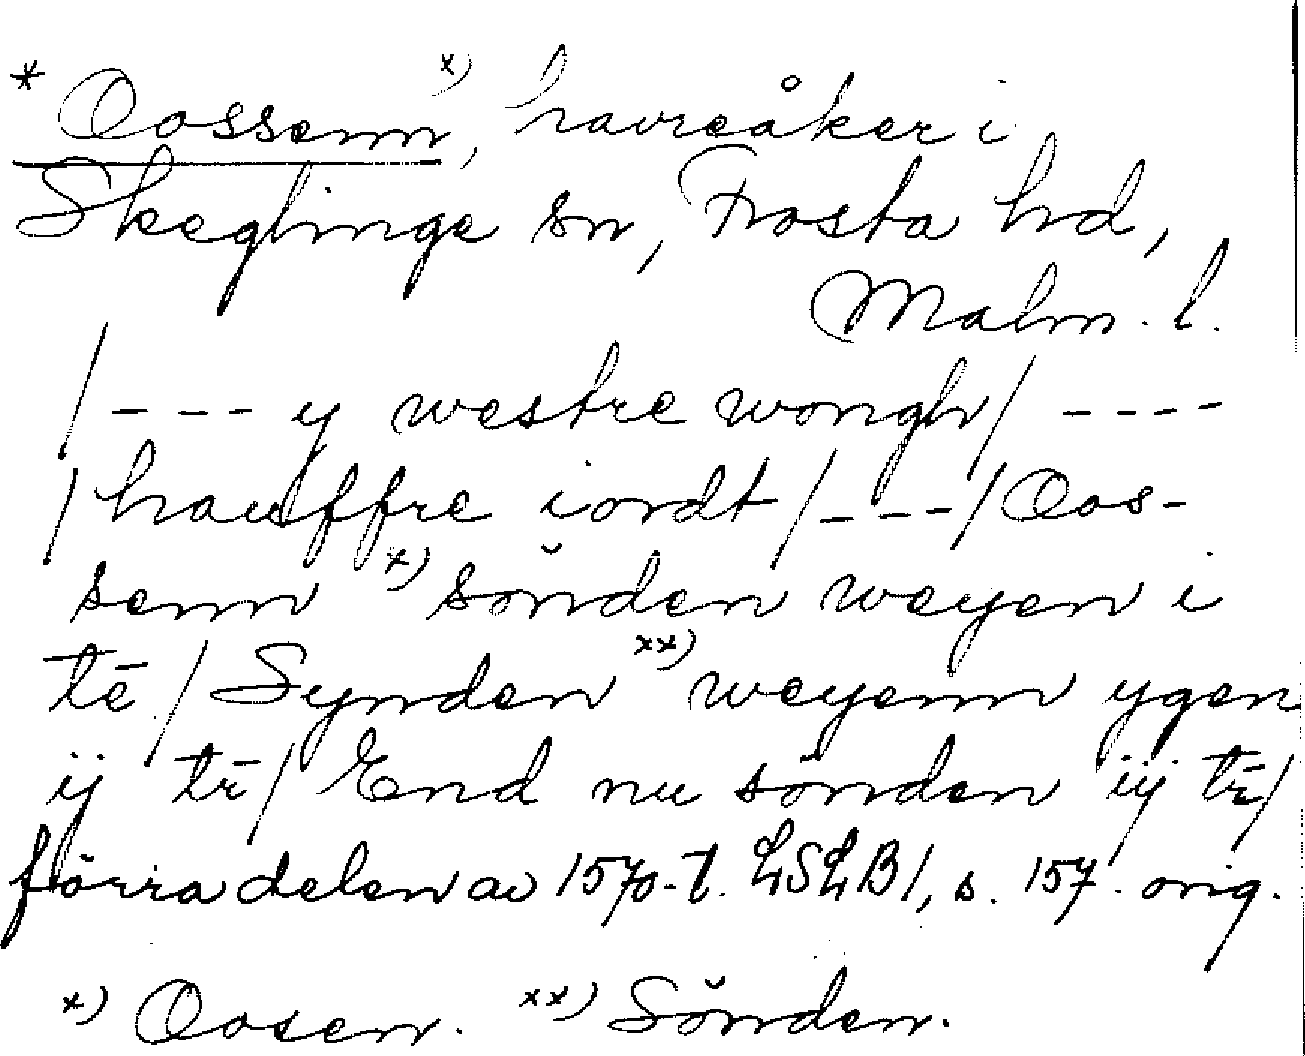 * Oossenn x), havreåker i
Skeglinge sn, Frosta hd,
Malm. l.
/ - - - y westre wongh / - - - -
/ hauffre iordt / - - - / Oos-
senn x) sönden weyen i
tē / Synden xx) weyenn ygen
ij tr̄ / End nu sönden iij tr̄ /
förra delen av 1570-t. LSLB1, s. 157 orig.
x) Oosen. xx) Sönden.